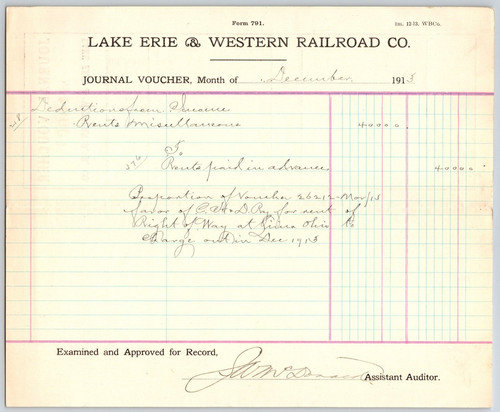 Form 791.
1m. 12.13. WBCo.
LAKE ERIE & WESTERN RAILROAD CO.
JOURNAL VOUCHER, Month of December 1913
Deductions from Income
Rents Miscellaneous 40000
To
Rents paid in advance. 40000
Proportion of Voucher 26212-Mar/13
favor of C.H.&D.Ry. for rent of
Right of Way at Lima Ohio to
Charge out in Dec 1913
Examined and Approved for Record,
Assistant Auditor.